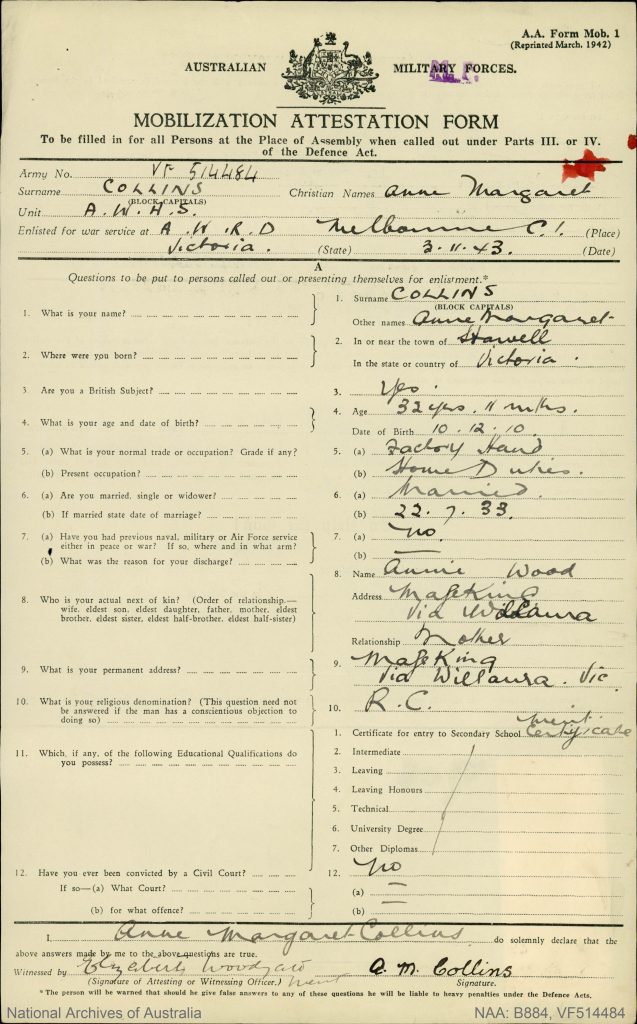 A.A. Form Mob. 1
(Reprinted March. 1942)
AUSTRALIAN MILITARY FORCES.
MOBILIZATION ATTESTATION FORM
To be filled in for all Persons at the Place of Assembly when called out under Parts III. or IV.
of the Defence Act.
Army No. VF 514484
Surname COLLINS Christian Names Anne Margaret
(BLOCK CAPITALS)
Unit A.W.A.S.
Enlisted for war service at A.W.R.D Melbourne C.1. (Place)
Victoria. (State) 3.11.43. (Date)
A
Questions to be put to persons called out or presenting themselves for enlistment.*
1. What is your name? 1. Surname COLLINS
(BLOCK CAPITALS)
Other names Anne Margaret
2. Where were you born? 2. In or near the town of Stawell
In the state or country of Victoria.
3. Are you a British Subject? 3. Yes.
4. What is your age and date of birth? 4. Age 32 yrs. 11 mths.
Date of Birth 10.12.10.
5. (a) What is your normal trade or occupation? Grade if any? 5. (a) Factory Hand
(b) Present occupation? (b) Home Duties.
6. (a) Are you married, single or widower? 6. (a) Married.
(b) If married state date of marriage? (b) 22.7.33.
7. (a) Have you had previous naval, military or Air Force service
either in peace or war? If so, where and in what arm? 7. (a) No.
(b) What was the reason for your discharge? (b) —
8. Who is your actual next of kin? (Order of relationship.—
wife, eldest son, eldest daughter, father, mother, eldest
brother, eldest sister, eldest half-brother, eldest half-sister)
8. Name Annie Wood
Address Mafeking
Via Willaura
Relationship Mother
9. What is your permanent address? 9. Mafeking
Via Willaura. Vic
10. What is your religious denomination? (This question need not
be answered if the man has a conscientious objection to
doing so) 10. R.C.
11. Which, if any, of the following Educational Qualifications do
you possess?
1. Certificate for entry to Secondary School Merit Certificate
2. Intermediate
3. Leaving
4. Leaving Honours
5. Technical
6. University Degree
7. Other Diplomas
12. Have you ever been convicted by a Civil Court? 12. No
If so—(a) What Court? (a) —
(b) for what offence? (b) —
I, Anne Margaret Collins do solemnly declare that the
above answers made by me to the above questions are true.
Witnessed by Elizabeth A. M. Collins
(Signature of Attesting or Witnessing Officer.) Signature.
*The person will be warned that should he give false answers to any of these questions he will be liable to heavy penalties under the Defence Acts.
National Archives of Australia NAA: B884, VF514484